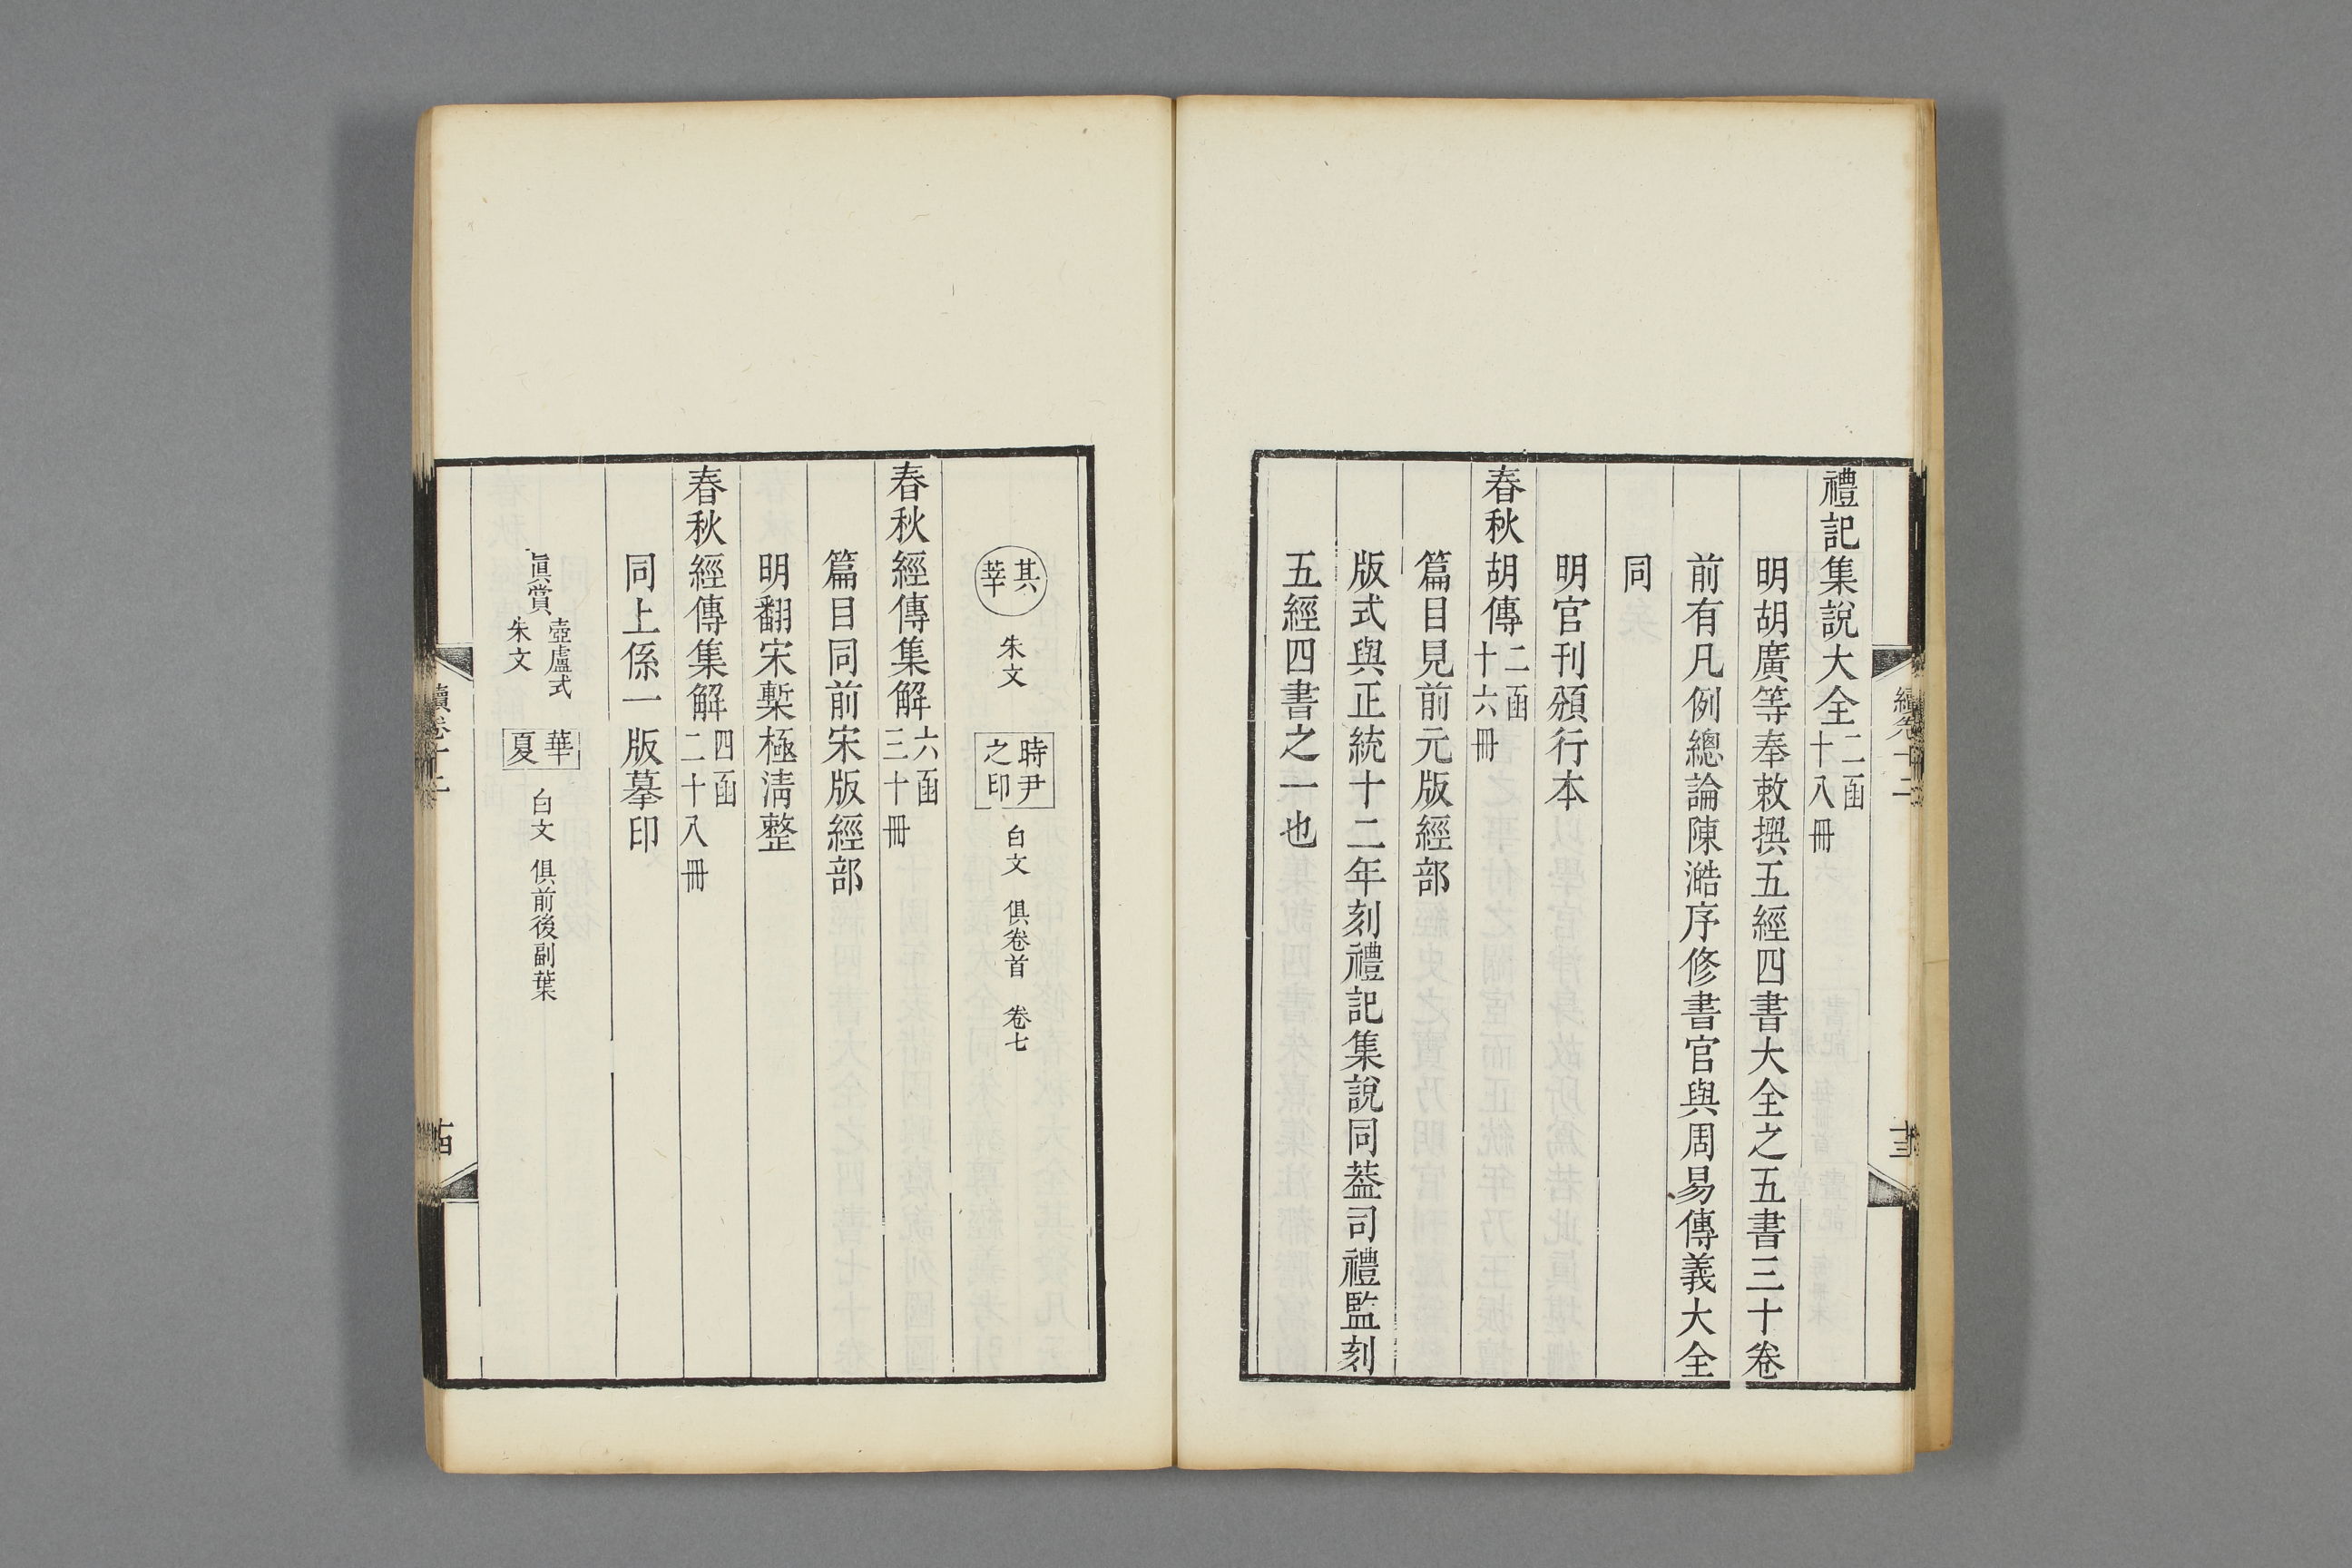 禮記集說大全二函十八冊
明胡廣等奉敕撰五經四書大全之五書三十卷
前有凡例總論陳澔序修書官與周易傳義大全
同
明官刊頒行本
春秋胡傳二函十六冊
篇目見前元版經部
版式與正統十二年刻禮記集說同葢司禮監刻
五經四書之一也
其莘 朱文 時尹之印 白文 俱卷首 卷七
春秋經傳集解六函三十冊
篇目同前宋版經部
明翻宋槧極淸整
春秋經傳集解四函二十八冊
同上係一版摹印
眞賞 壺盧式朱文 華夏 白文 俱前後副葉
續卷十二